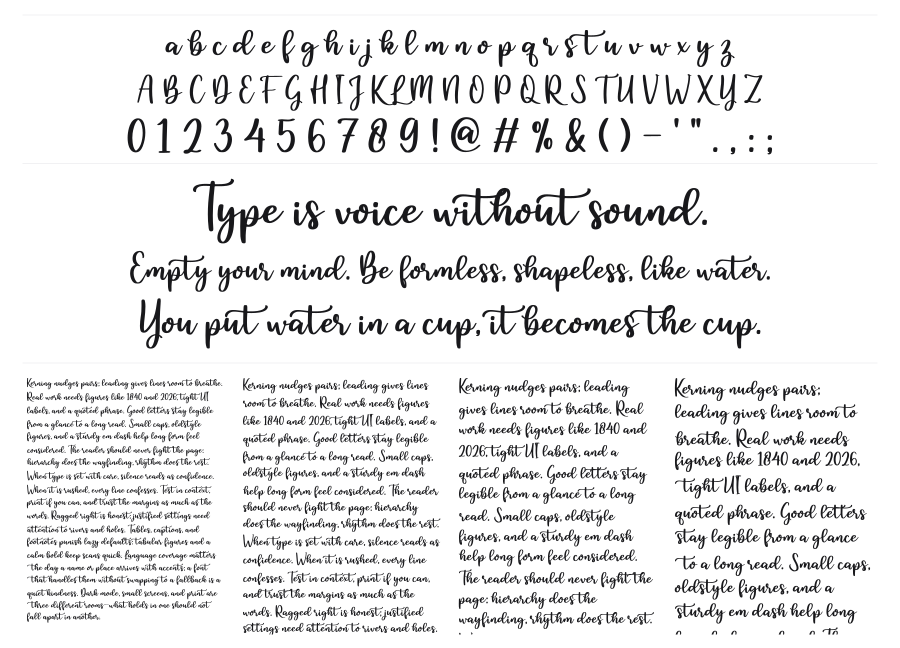 a b c d e f g h i j k l m n o p q r s t u v w x y z
A B C D E F G H I J K L M N O P Q R S T U V W X Y Z
0 1 2 3 4 5 6 7 8 9 ! @ # % & ( ) – ' " . , : ;
Type is voice without sound.
Empty your mind. Be formless, shapeless, like water.
You put water in a cup, it becomes the cup.
Kerning nudges pairs; leading gives lines room to breathe.
Real work needs figures like 1840 and 2026, tight UI
labels, and a quoted phrase. Good letters stay legible
from a glance to a long read. Small caps, oldstyle
figures, and a sturdy em dash help long form feel
considered. The reader should never fight the page;
hierarchy does the wayfinding, rhythm does the rest.
When type is set with care, silence reads as confidence.
When it is rushed, every line confesses. Test in context,
print if you can, and trust the margins as much as the
words. Ragged right is honest; justified settings need
attention to rivers and holes. Tables, captions, and
footnotes punish lazy defaults; tabular figures and a
calm bold keep scans quick. Language coverage matters
the day a name or place arrives with accents; a font
that handles them without swapping to a fallback is a
quiet kindness. Dark mode, small screens, and print are
three different rooms—what holds in one should not
fall apart in another.
Kerning nudges pairs; leading gives lines
room to breathe. Real work needs figures
like 1840 and 2026, tight UI labels, and a
quoted phrase. Good letters stay legible
from a glance to a long read. Small caps,
oldstyle figures, and a sturdy em dash
help long form feel considered. The reader
should never fight the page; hierarchy
does the wayfinding, rhythm does the rest.
When type is set with care, silence reads as
confidence. When it is rushed, every line
confesses. Test in context, print if you can,
and trust the margins as much as the
words. Ragged right is honest; justified
settings need attention to rivers and holes.
Kerning nudges pairs; leading
gives lines room to breathe. Real
work needs figures like 1840 and
2026, tight UI labels, and a
quoted phrase. Good letters stay
legible from a glance to a long
read. Small caps, oldstyle
figures, and a sturdy em dash
help long form feel considered.
The reader should never fight the
page; hierarchy does the
wayfinding, rhythm does the rest.
Kerning nudges pairs;
leading gives lines room to
breathe. Real work needs
figures like 1840 and 2026,
tight UI labels, and a
quoted phrase. Good letters
stay legible from a glance
to a long read. Small caps,
oldstyle figures, and a
sturdy em dash help long